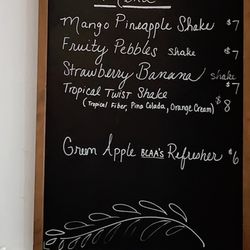 Menu
Mango Pineapple Shake $7
Fruity Pebbles shake $7
Strawberry Banana shake $7
Tropical TWIST Shake $8
(Tropical Fiber, Pina Colada, Orange Cream)
Green Apple BCAA's Refresher $6